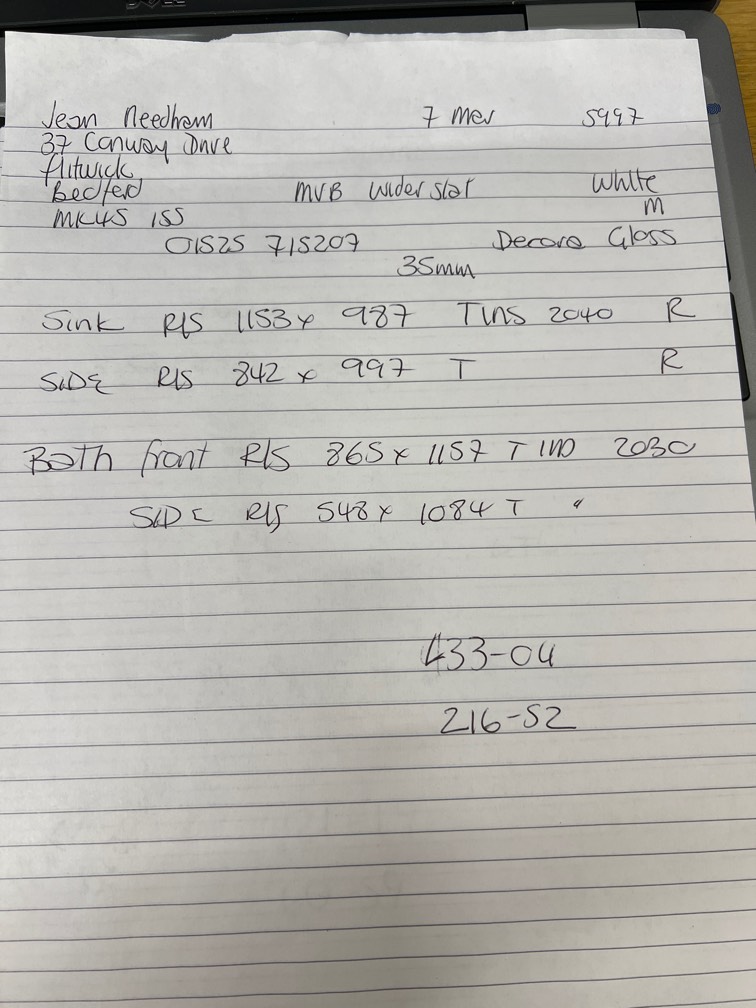 Jean Needham 7 Mar 5997
37 Conway Drive
flitwick
Bedford MVB wider slat White
MK45 1SS M
01525 715207 Decora Gloss
35mm
Sink R/S 1153 x 987 T INS 2040 R
SIDE R/S 842 x 997 T R
Both front R/S 865 x 1157 T IND 2030
SIDE R/S 548 x 1084 T "
433-04
216-52